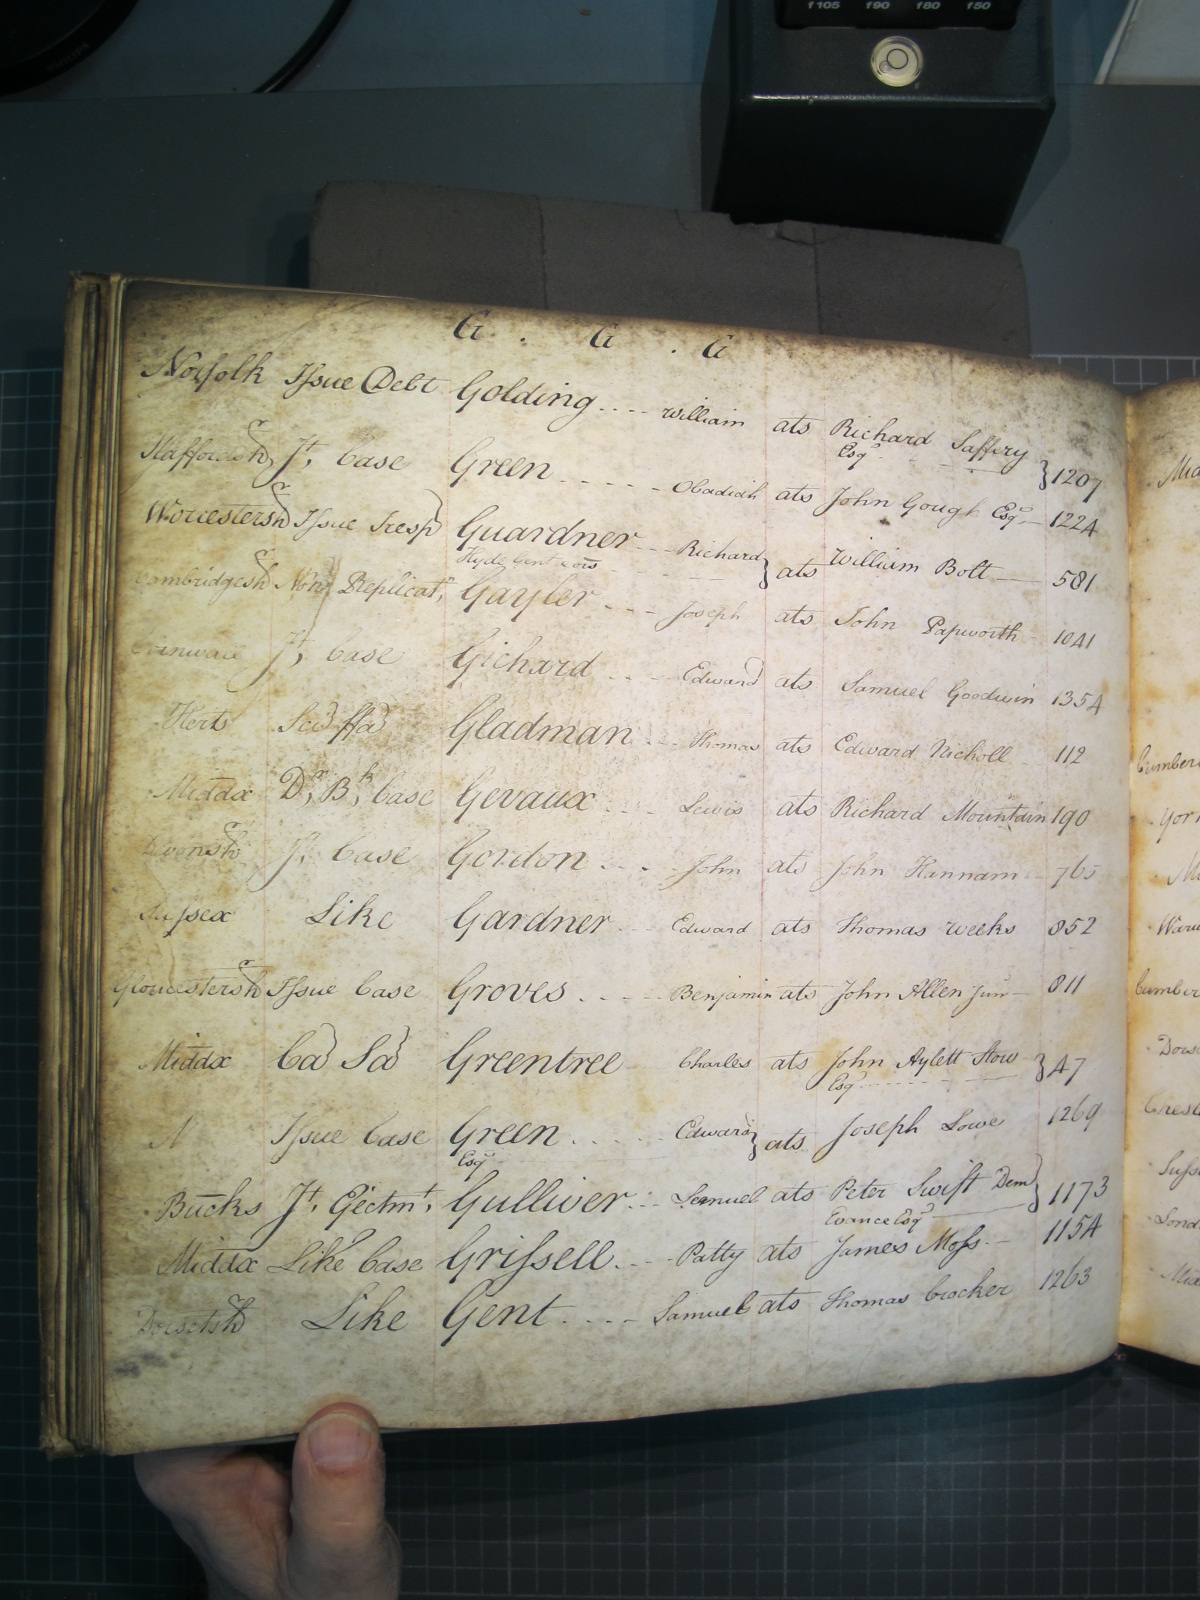 f105 f90 f80 f50
PHILIPS
G . G . G
Norfolk Issue Debt Golding .... William ats Richard Saffery
Esqr } 1207
Staffordsh Jt, Case Green ..... Obadiah ats John Gough Esqr 1224
Worcestersh Issue Tresp Guardner .. Richard } ats William Bolt 581
Hyde Gent
Cambridgesh Replicatn, Gayler ... Joseph ats John Papworth 1041
Cornwall Jt, Case Gichard ... Edward ats Samuel Goodwin 1354
Herts Scd ffad Gladman ... Thomas ats Edward Nicholl 112
Middx Dr, Bk, Case Gevaux ... Lewis ats Richard Mountain 190
Devonsh Jt, Case Gordon ... John ats John Hannam 765
Sussex Like Gardner ... Edward ats Thomas Weeks 852
Gloucestersh Issue Case Groves .... Benjamin ats John Allen Junr 811
Middx Cad Sad Greentree Charles ats John Aylett Stow
Esqr } 47
Issue Case Green .... Edward } ats Joseph Lowe 1269
Esqr
Bucks Jt, Ejectmt, Gulliver .. Samuel ats Peter Swift Dem } 1173
Evance Esqr
Middx Like Case Grissell ... Patty ats James Moss 1154
Dorsetsh Like Gent .... Samuel ats Thomas Crocker 1263